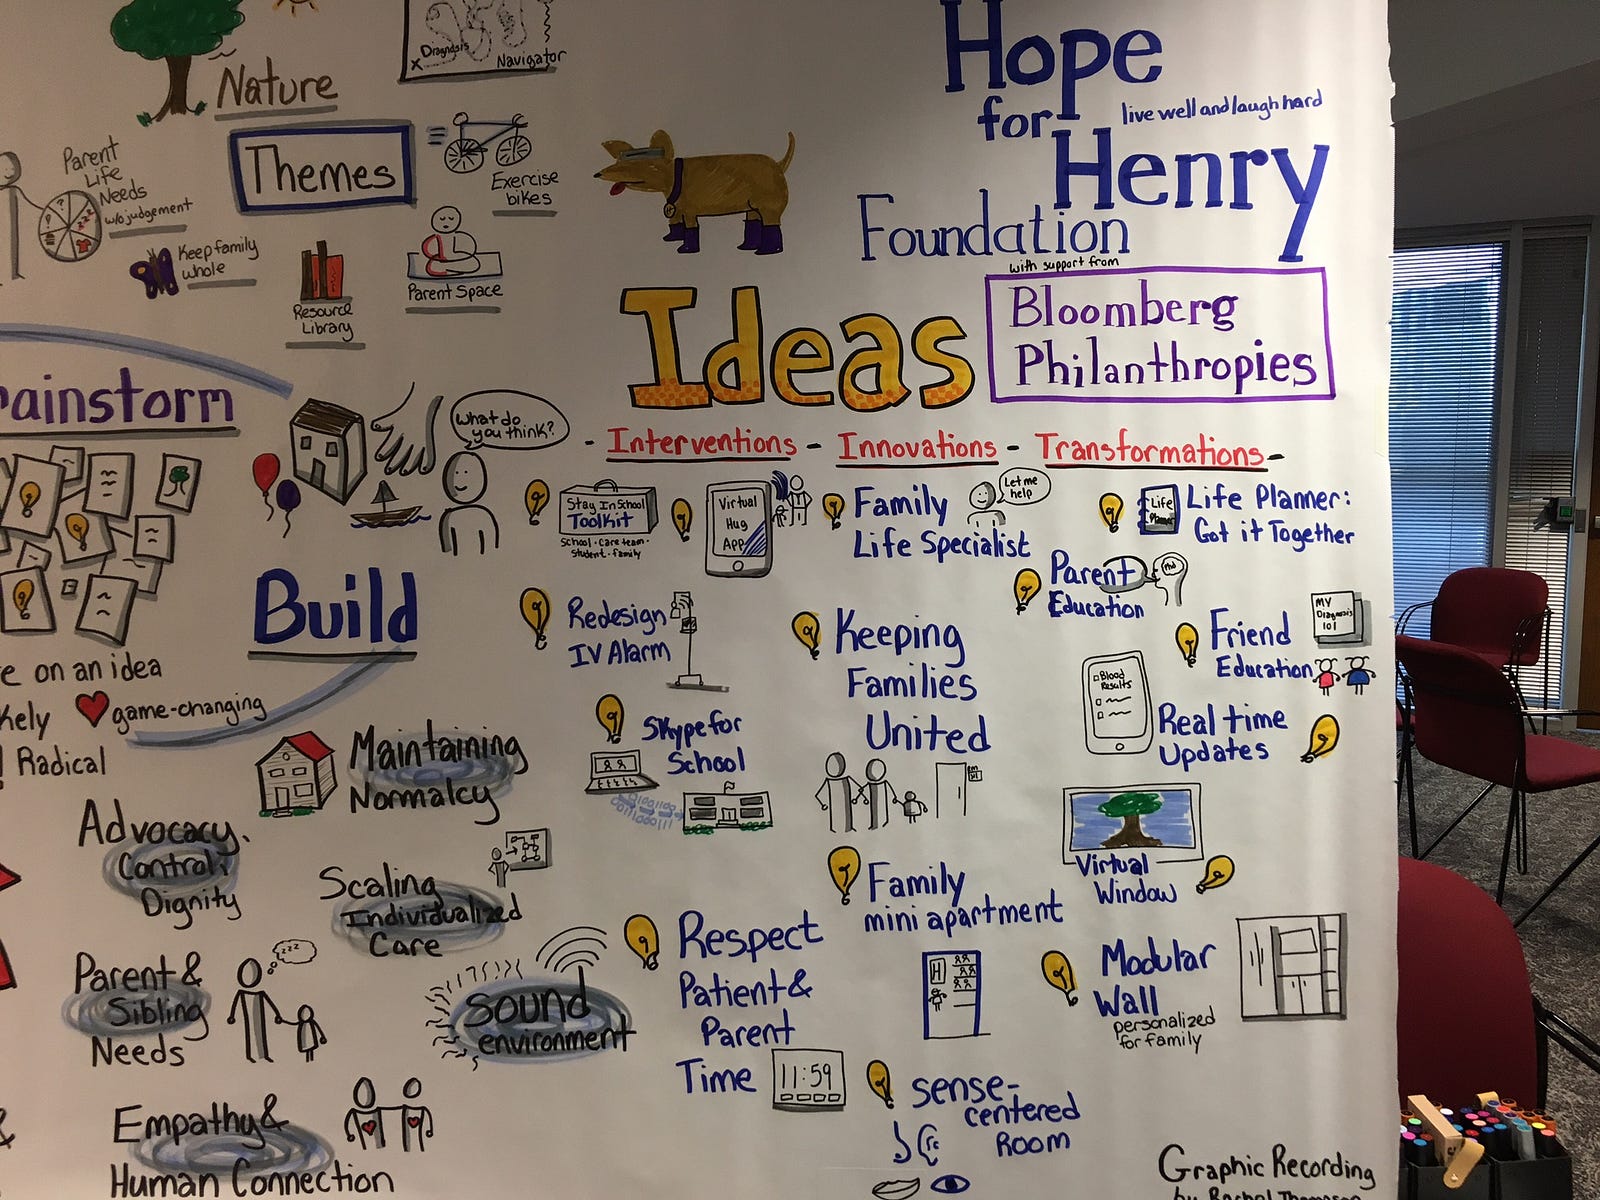 Nature
Diagnosis
x
Navigator
Hope
for
Henry
live well and laugh hard
Foundation
with support from
Bloomberg
Philanthropies
Themes
Exercise
bikes
Parent
Life
Needs
w/o judgement
Keep family
whole
Resource
Library
Parent Space
Ideas
- Interventions - Innovations - Transformations -
ainstorm
What do
you think?
Build
e on an idea
kely
game-changing
Radical
Stay In School
Toolkit
School · care team ·
student · family
Virtual
Hug
App
Family
Life Specialist
Let me
help
Life
Planner
Life Planner:
Got it Together
Redesign
IV Alarm
Keeping
Families
United
Parent
Education
PhD
Friend
Education
MY
Diagnosis
101
Skype for
School
Blood
Results
Real time
Updates
Maintaining
Normalcy
Advocacy,
Control,
Dignity
Scaling
Individualized
Care
Virtual
Window
Family
mini apartment
H
Parent &
Sibling
Needs
zzz
Sound
environment
Respect
Patient &
Parent
Time
11:59
Modular
Wall
personalized
for family
Sense-
centered
Room
Empathy &
Human Connection
&
Graphic Recording
by Rachel Thompson